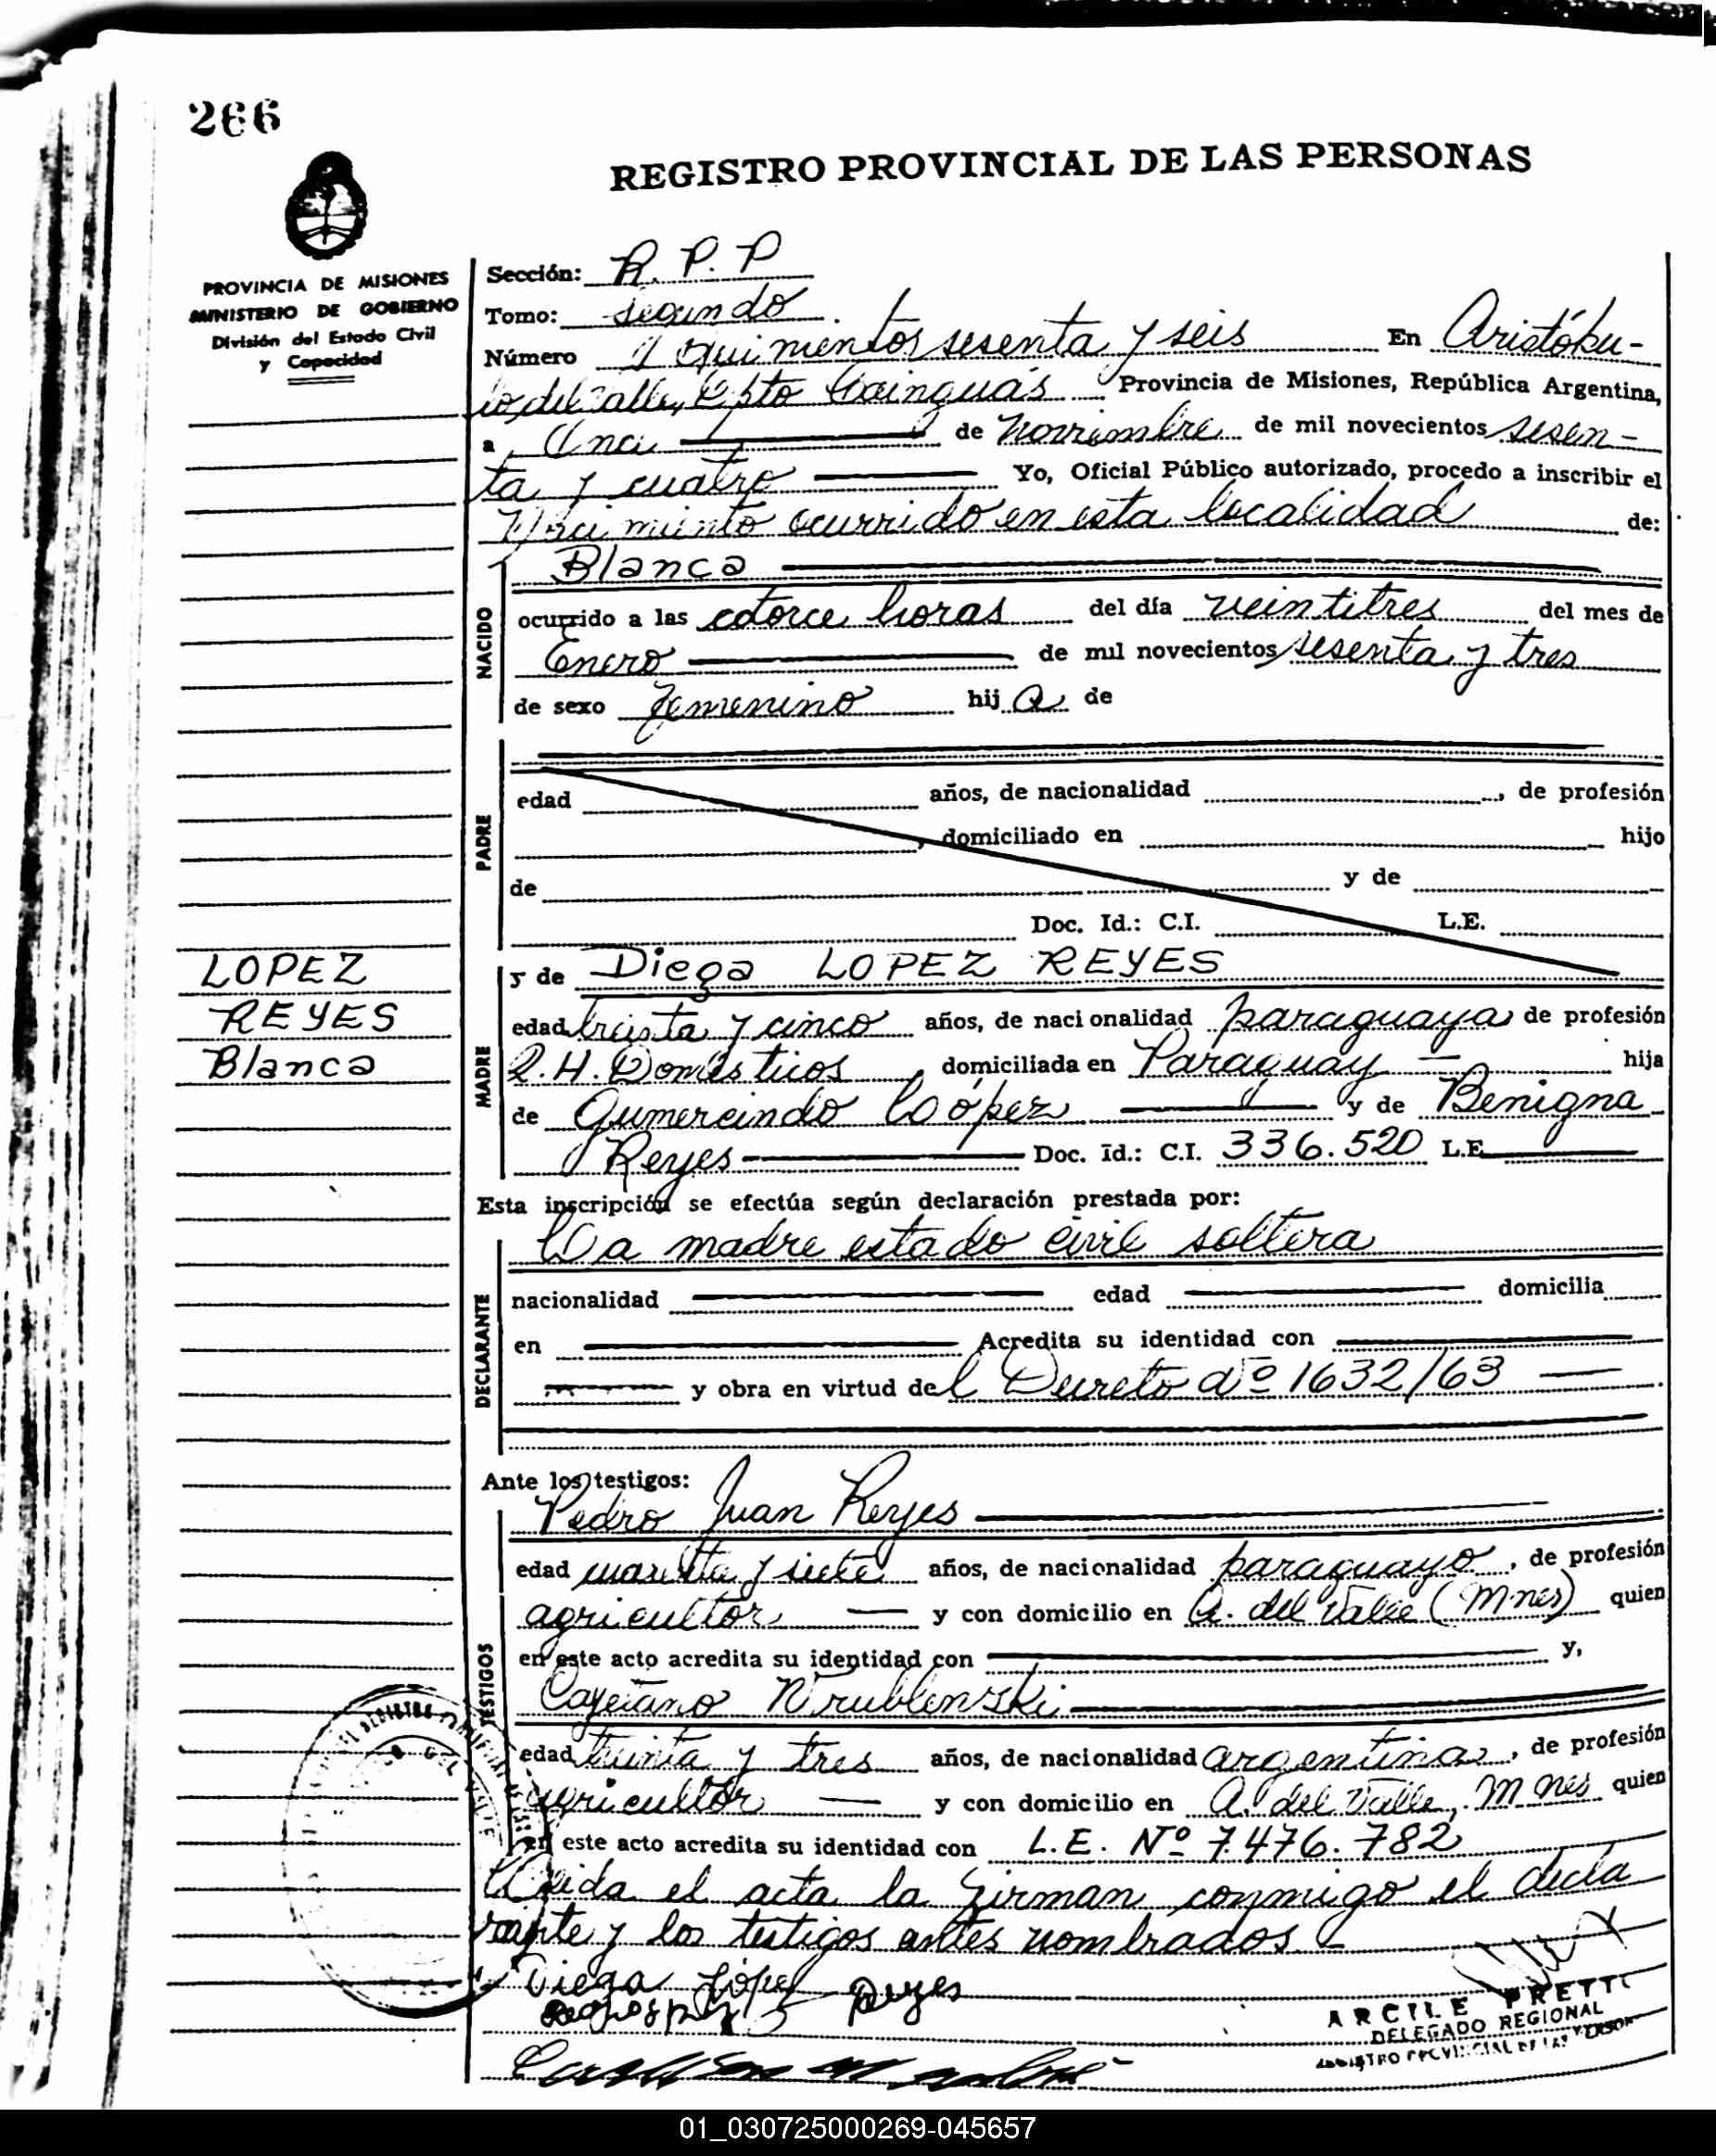 266
REGISTRO PROVINCIAL DE LAS PERSONAS
PROVINCIA DE MISIONES
MINISTERIO DE GOBIERNO
División del Estado Civil
y Capacidad
Sección: R. P. P
Tomo: segundo
Número quinientos sesenta y seis En Aristóbu-
lo del Valle, Dpto Cainguás Provincia de Misiones, República Argentina,
a once de noviembre de mil novecientos sesen-
ta y cuatro Yo, Oficial Público autorizado, procedo a inscribir el
Nacimiento ocurrido en esta localidad de:
NACIDO
Blanca
ocurrido a las catorce horas del día veintitres del mes de
Enero de mil novecientos sesenta y tres
de sexo femenino hij a de
PADRE
edad años, de nacionalidad , de profesión
, domiciliado en hijo
de y de
Doc. Id.: C.I. L.E.
LOPEZ
REYES
Blanca
MADRE
y de Diega LOPEZ REYES
edad treinta y cinco años, de nacionalidad paraguaya de profesión
Q. H. Domésticos , domiciliada en Paraguay hija
de Gumercindo López y de Benigna
Reyes Doc. Id.: C.I. 336.520 L.E.
Esta inscripción se efectúa según declaración prestada por:
DECLARANTE
La madre estado civil soltera
nacionalidad edad domicilia
en Acredita su identidad con
y obra en virtud del Decreto Nº 1632/63
Ante los testigos:
TESTIGOS
Pedro Juan Reyes
edad cuarenta y siete años, de nacionalidad paraguayo, de profesión
agricultor y con domicilio en A. del Valle (Mnes) quien
en este acto acredita su identidad con y,
Cayetano Wrublenski
edad treinta y tres años, de nacionalidad argentina, de profesión
agricultor y con domicilio en A. del Valle, Mnes quien
en este acto acredita su identidad con L.E. Nº 7.476.782
Leida el acta la firman conmigo el decla
rante y los testigos antes nombrados
Diega López Reyes
ARCILE PRETTI
DELEGADO REGIONAL
REGISTRO PROVINCIAL DE LAS PERSON
01_030725000269-045657